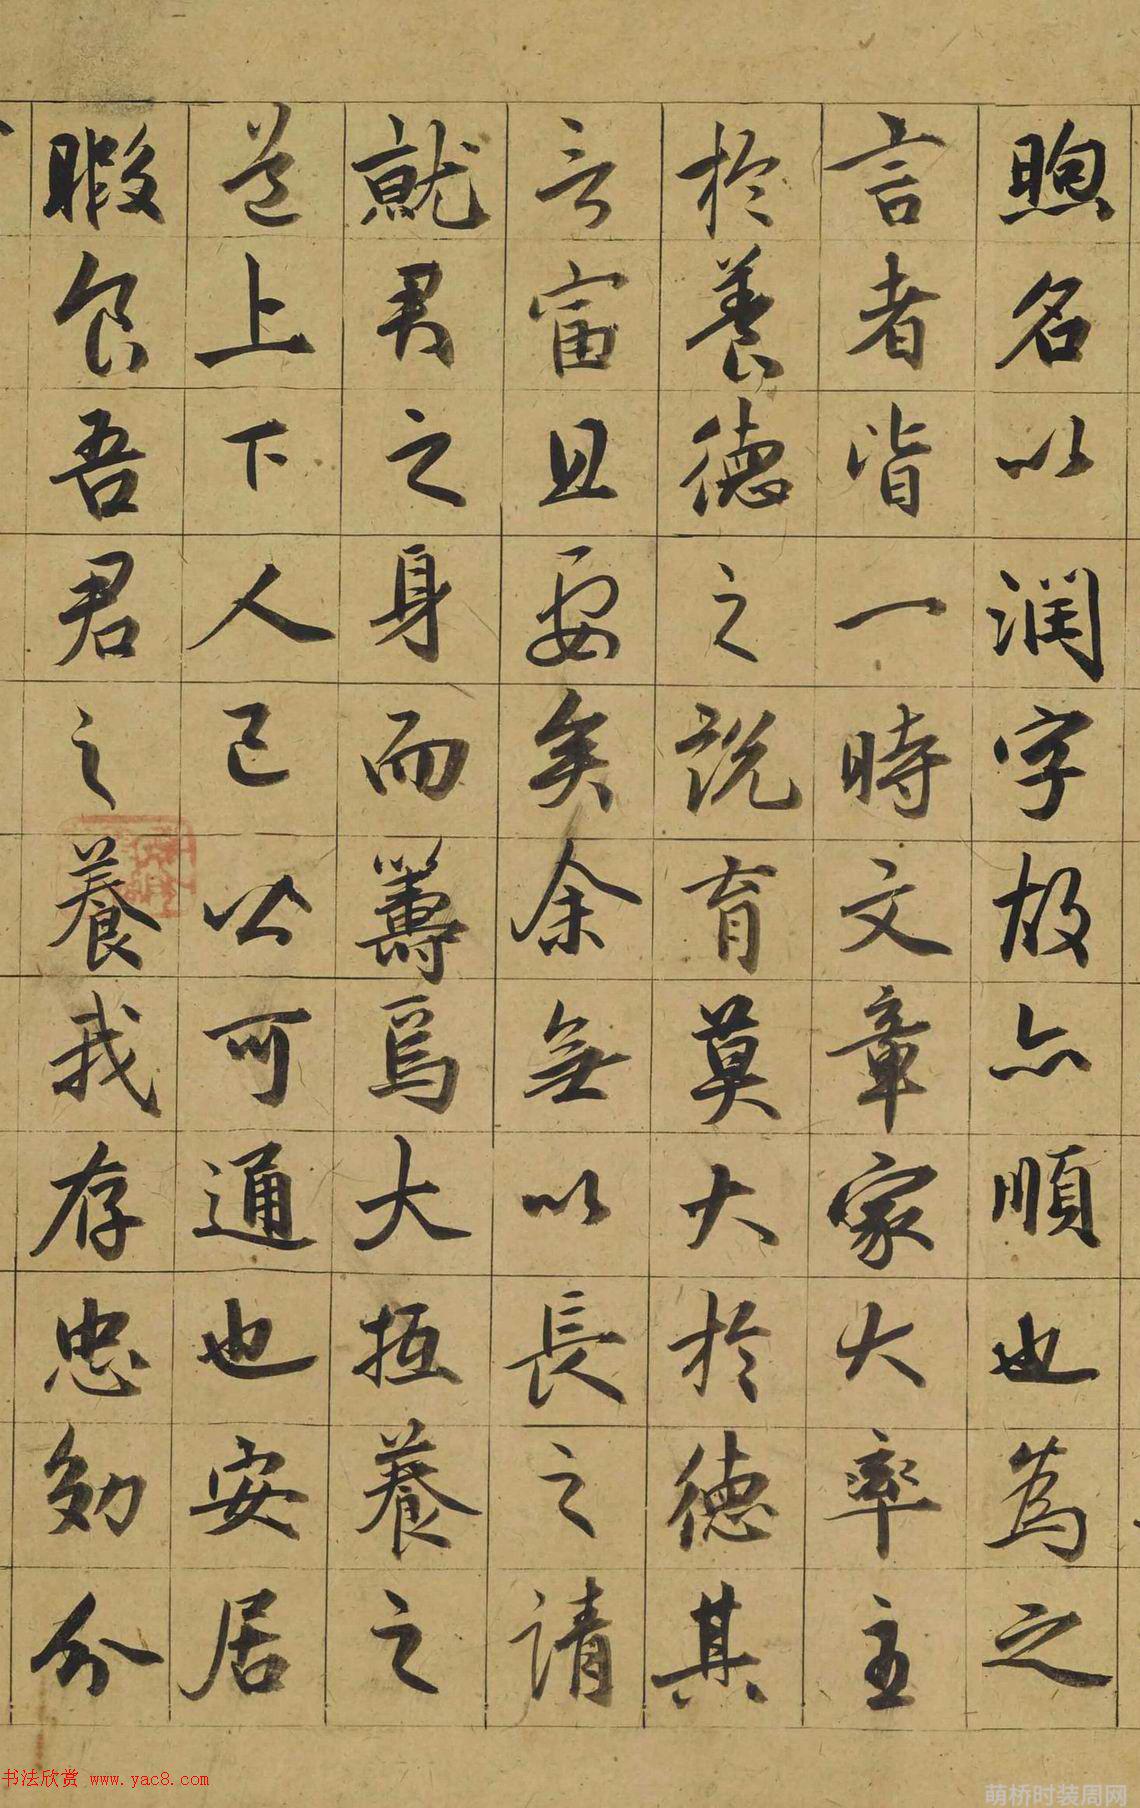 煦名以潤字故亦順也爲之
言者皆一時文章家大率主
於養德之説育莫大於德其
言富且要矣余無以長之請
就君之身而籌焉大抵養之
道上下人己公可通也安居
暇食吾君之養我存忠効分
书法欣赏 www.yac8.com
萌桥时装周网